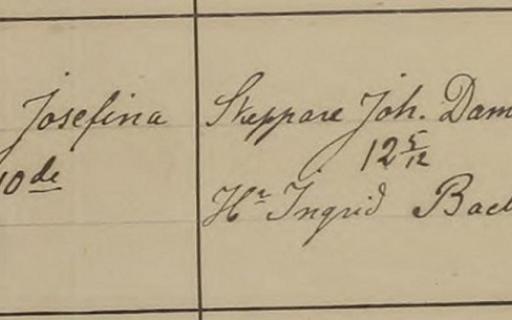 Josefina
10de
Skeppare Joh. Dam
12 5/12
Hr Ingrid Bael